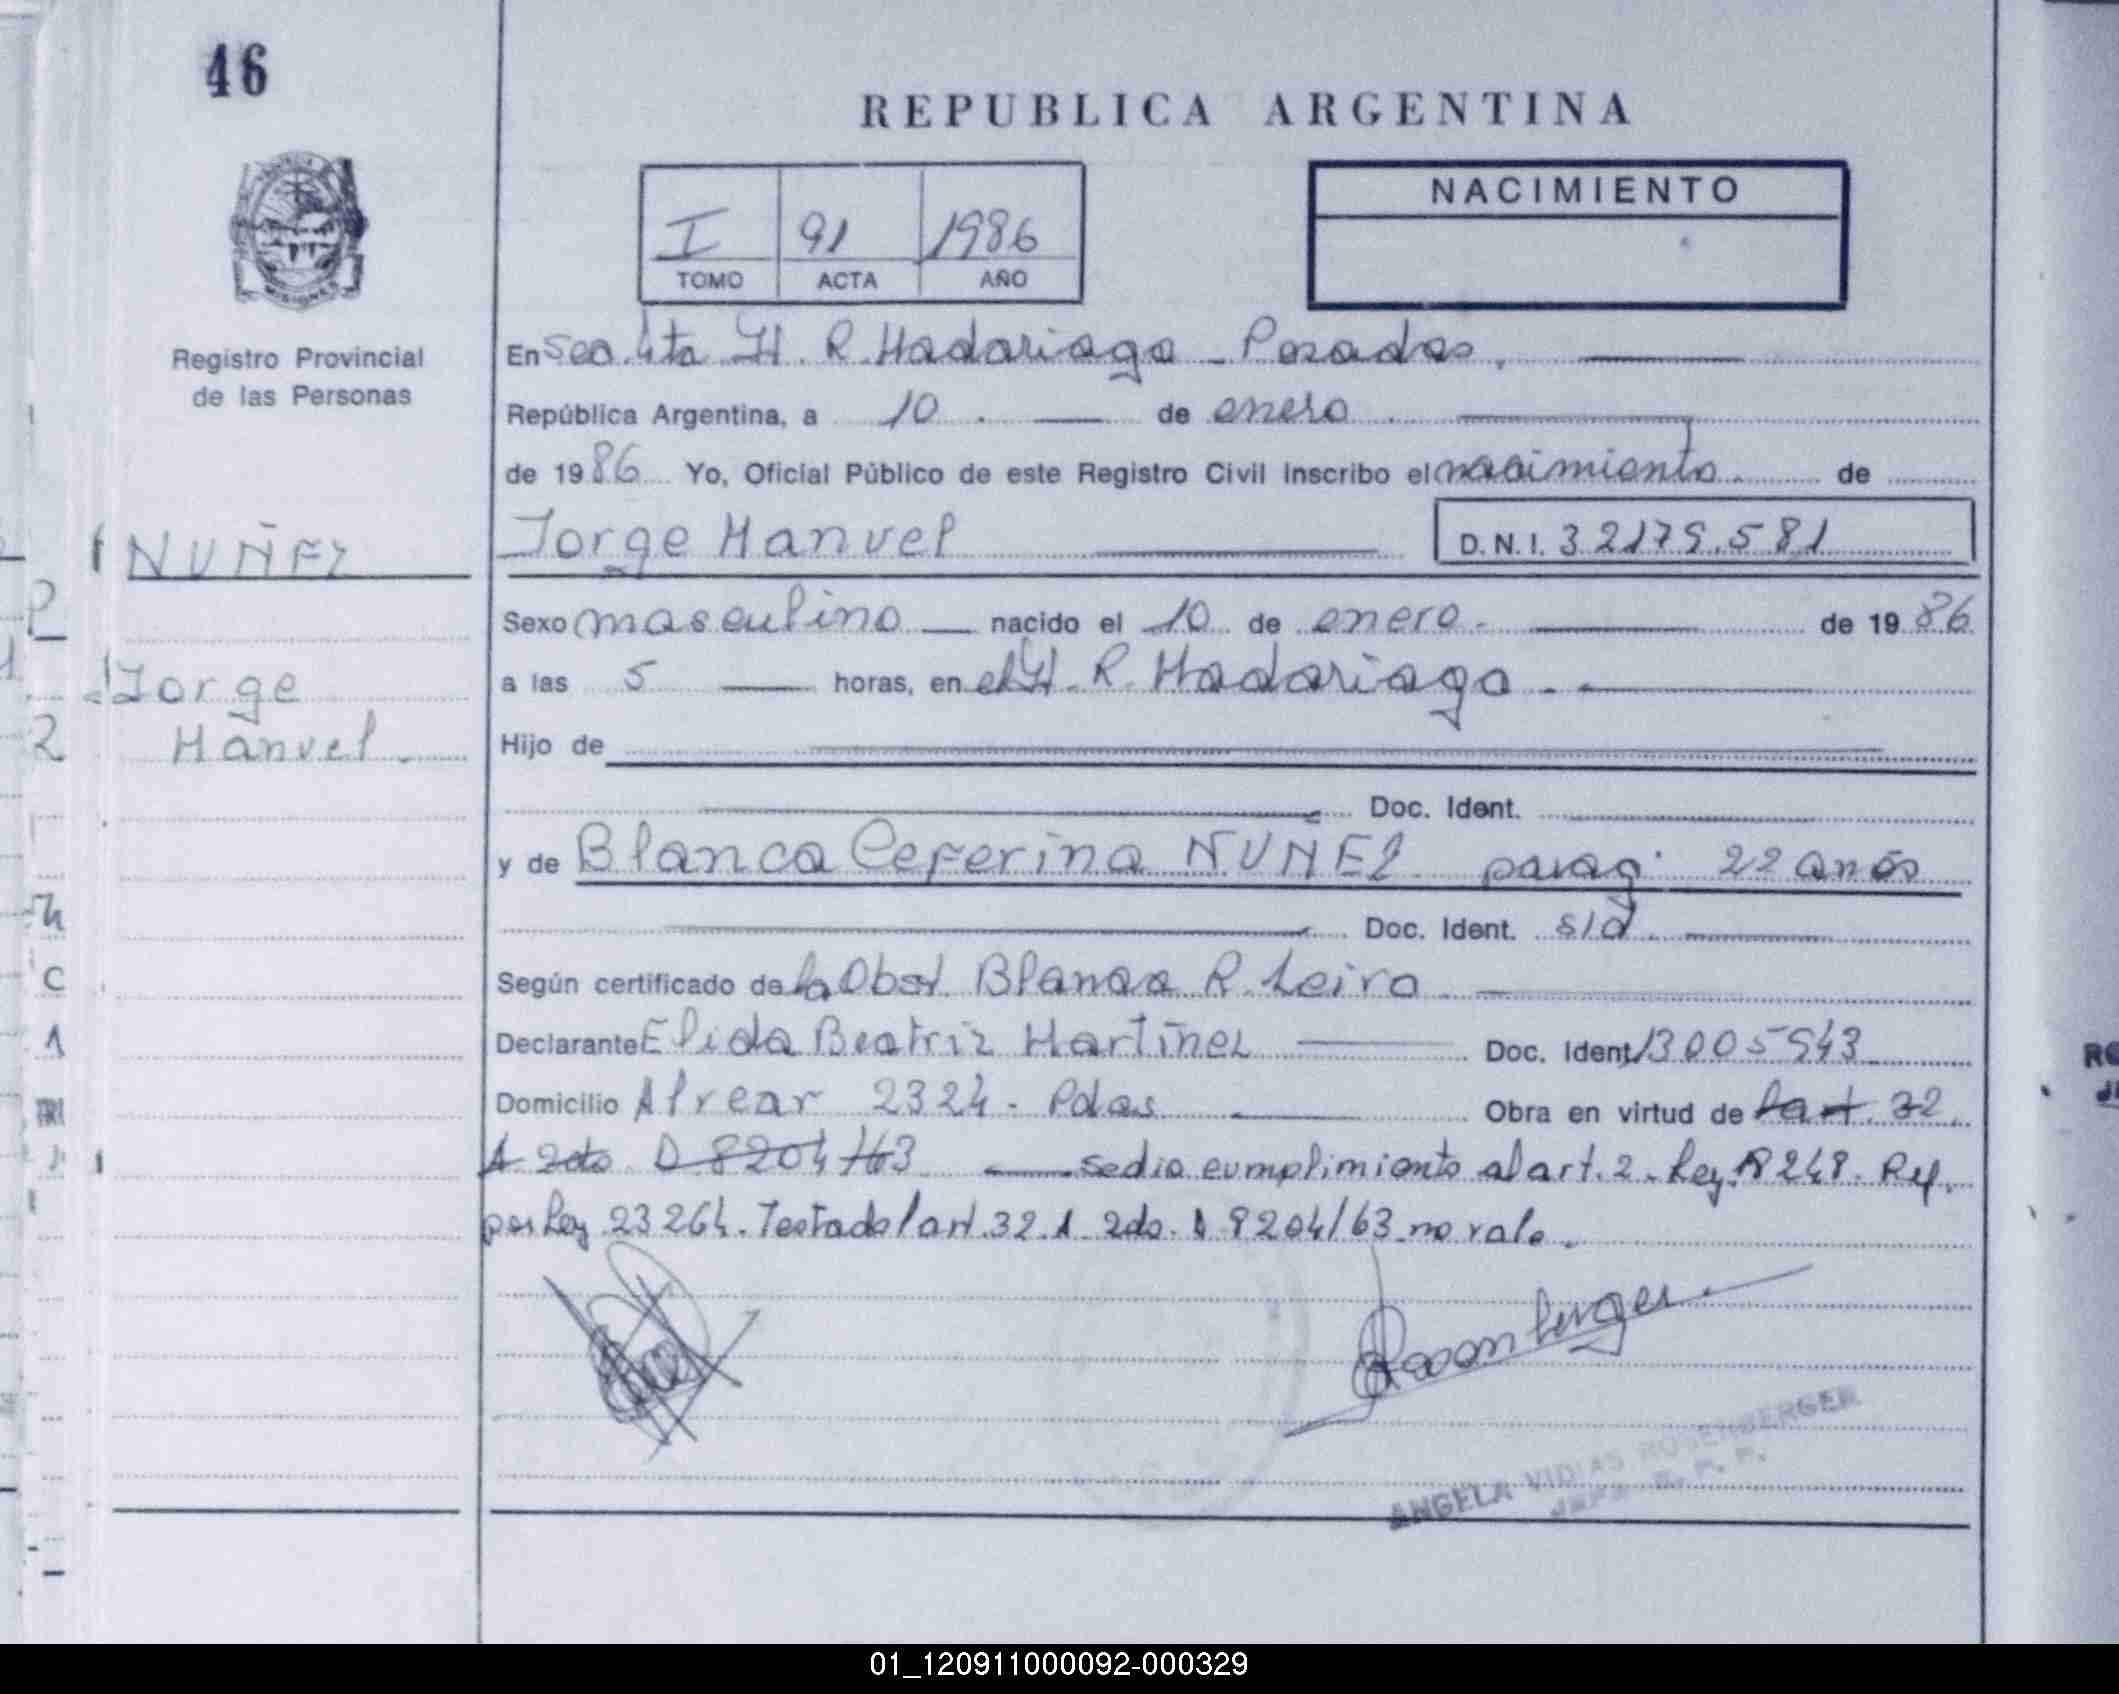 46
REPUBLICA ARGENTINA
I 91 1986
TOMO ACTA AÑO
NACIMIENTO
MISIONES
Registro Provincial
de las Personas
En Sec. 4ta H. R. Madariaga - Posadas.
República Argentina, a 10 . de enero
de 1986 Yo, Oficial Público de este Registro Civil inscribo el nacimiento de
NUÑEZ
Jorge Manuel D.N.I. 32179.581
Sexo masculino nacido el 10 de enero. de 1986
Jorge
Manuel.
a las 5 horas, en el H. R. Madariaga.
Hijo de
Doc. Ident.
y de Blanca Ceferina NUÑEZ parag. 22 años
Doc. Ident. s/d.
Según certificado de la Obst. Blanca R. Leiva
Declarante Elida Beatriz Martínez Doc. Ident. 13005943
Domicilio Alvear 2324 - Pdas Obra en virtud de art. 32
A 2do D 8204/63 se dio cumplimiento al art. 2. Ley 18248. Ref.
por Ley 23264. Testado art. 32 A 2do. D 8204/63 no vale.
Rosenberger
ANGELA VIDIAS ROSENBERGER
JEFE R. P. P.
01_120911000092-000329